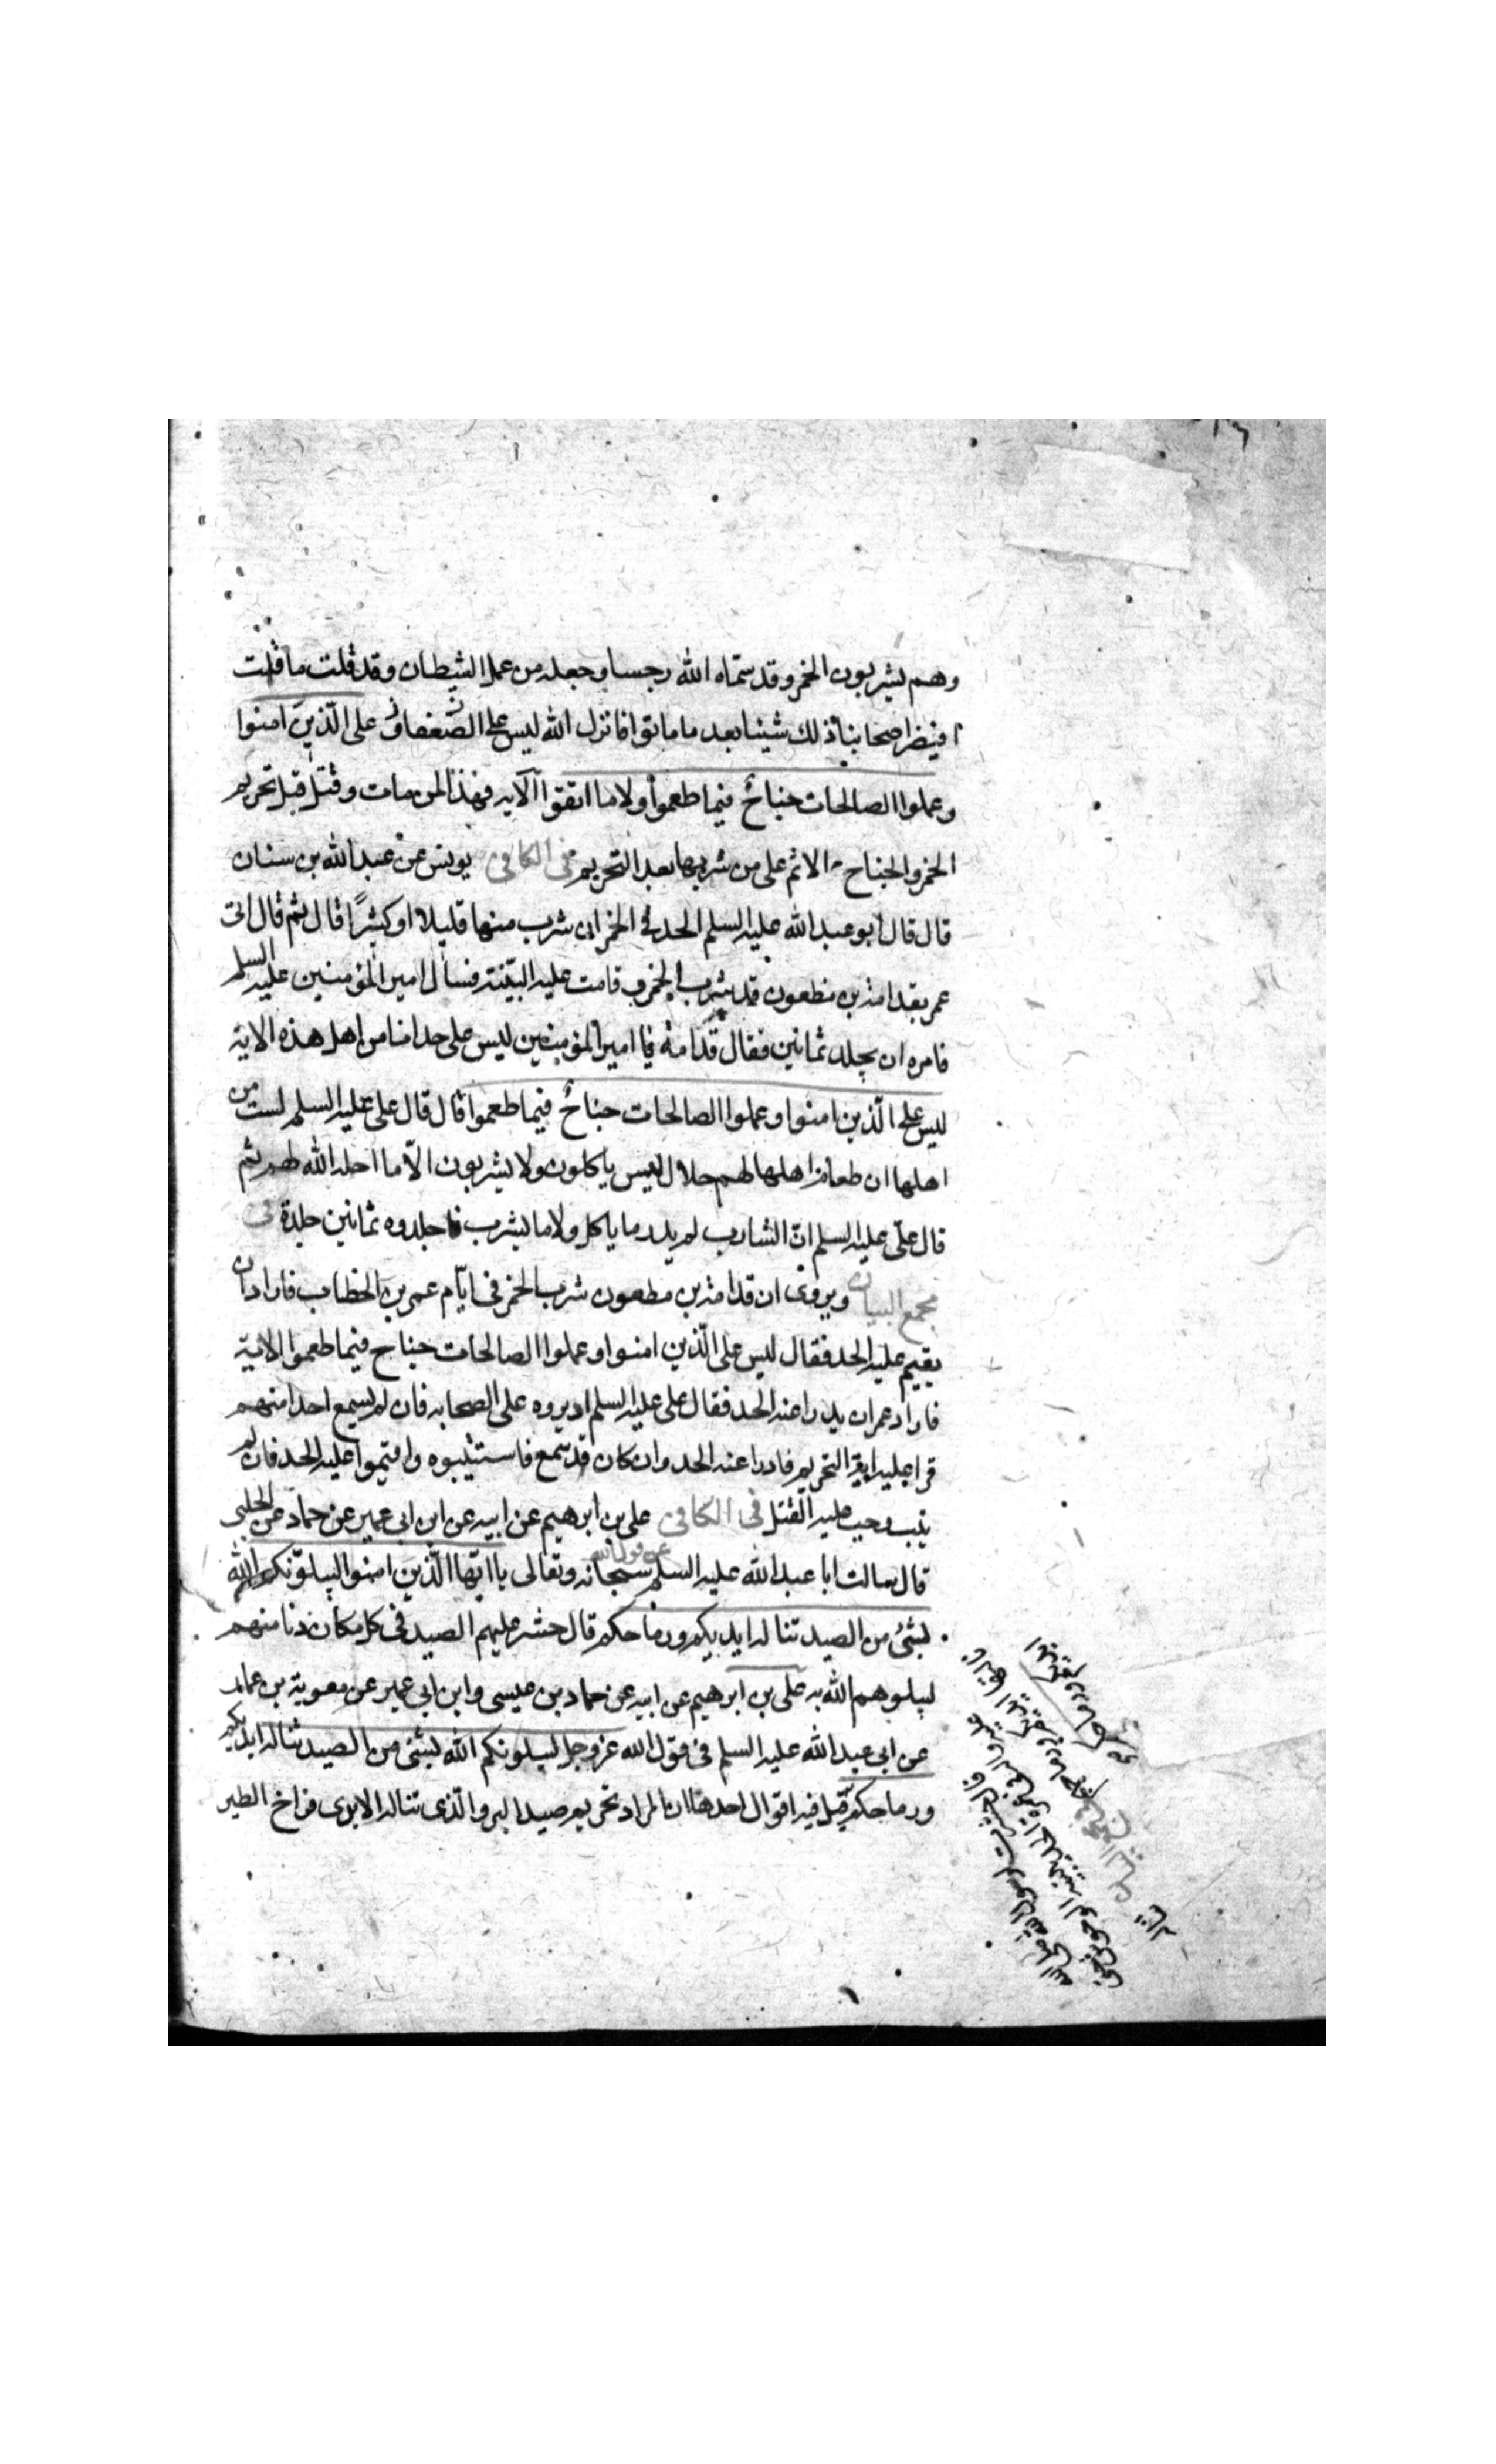 وهم يشربون الخمر وقد سمّاه الله رجسا وجعله من عمل الشيطان وقد قلت ما قلت
افيضر اصحابنا ذلك شيئا بعد ما ماتوا فانزل الله ليس على الذين امنوا
وعملوا الصالحات جناح فيما طعموا ولا ما اتقوا الآيه فهذا لمن مات وقتل قبل تحريم
الخمر والجناح الاثم على من شربها بعد التحريم فى الكافى يونس عن عبد الله بن سنان
قال قال ابو عبد الله عليه السلم الحد فى الخمر ان شرب منها قليلا او كثيرًا قال ثم قال اتى
عمر بقدامة بن مظعون قد شرب الخمر وقامت عليه البيّنة فسأل امير المؤمنين عليه السلم
فامره ان يجلد ثمانين فقال قدامة يا امير المؤمنين ليس على حد انا من اهل هذه الاية
ليس على الّذين امنوا وعملوا الصالحات جناحٌ فيما طعموا قال قال على عليه السلم لست من
اهلها ان طعام اهلها لهم حلال ليس ياكلون ولا يشربون الّا ما احله الله لهم ثم
قال علّى عليه السلم انّ الشارب لم يدر ما ياكل ولا ما يشرب فاجلدوه ثمانين جلدة فى
مجمع البيان ويروى ان قدامة بن مظعون شرب الخمر فى ايّام عمر بن الخطاب فاراد ان
يقيم عليه الحد فقال ليس على الّذين امنوا وعملوا الصالحات جناح فيما طعموا الاية
فاراد عمر ان يدرا عنه الحد فقال على عليه السلم اديروه على الصحابه فان لم يسمع احدا منهم
قرا عليه اية التحريم فادرا عنه الحد وان كان قد سمع فاستتيبوه واقيموا عليه الحد فان لم
يتب وجب عليه القتل فى الكافى على بن ابرهيم عن ابيه عن ابن ابى عمير عن حماد عن الحلبى
قال سالت ابا عبد الله عليه السلم عن قول الله سبحانه وتعالى يا ايّها الّذين امنوا ليبلوّنكم الله
بشئ من الصيد تناله ايديكم ورماحكم قال حشر عليهم الصيد فى كل مكان دنا منهم
ليبلوهم الله به على بن ابرهيم عن ابيه عن حماد بن عيسى وابن ابى عمير عن معوية بن عمار
عن ابى عبد الله عليه السلم فى قول الله عز وجل ليبلونكم الله بشئ من الصيد تناله ايديكم
ورماحكم قيل فيه اقوال احدها ان المراد تحريم صيد البر والّذى تناله الايدى فراخ الطير